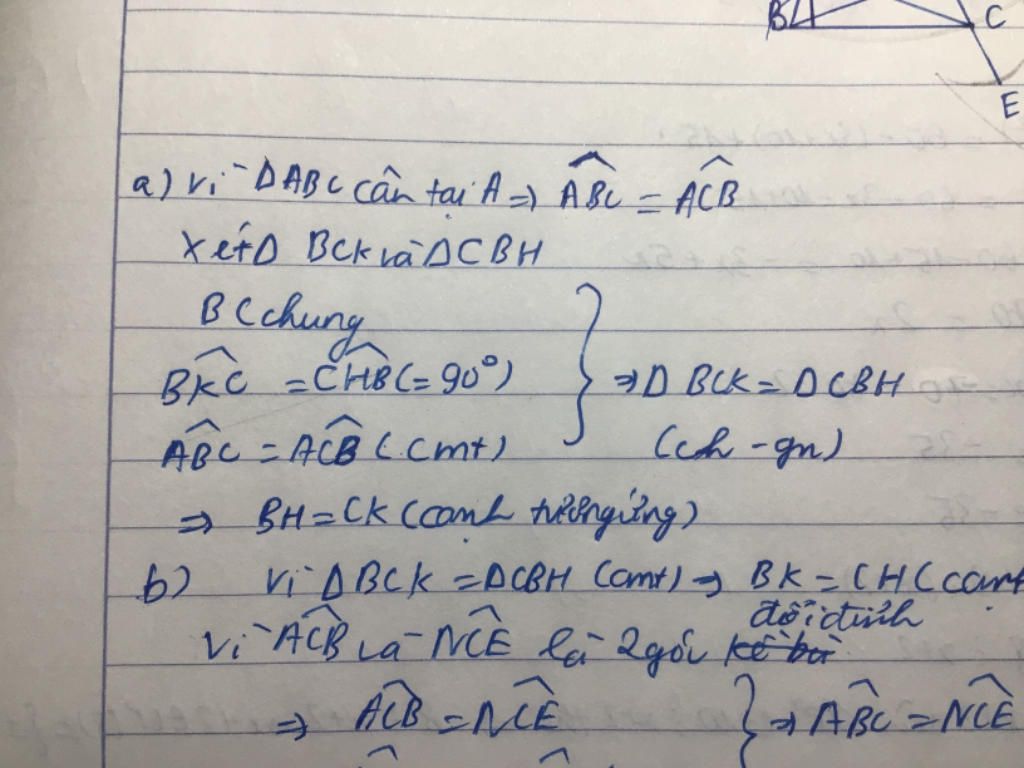 B C
E
a) Vì ΔABC cân tại A ⇒ ABC = ACB
Xét Δ BCK và ΔCBH
BC chung
BKC = CHB (= 90°)
ABC = ACB (cmt)
⇒ Δ BCK = ΔCBH
(ch - gn)
⇒ BH = CK (cạnh tương ứng)
b) Vì ΔBCK = ΔCBH (cmt) ⇒ BK = CH (cạnh
đối đỉnh
Vì ACB và NCE là 2 góc kề bù
⇒ ACB = NCE ⇒ ABC = NCE